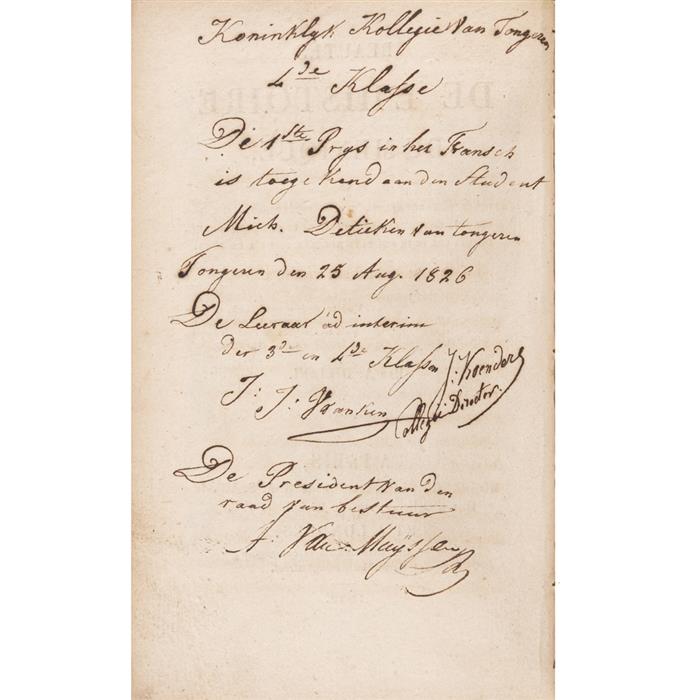 Koninklyk Kollegie Van Tongeren
4de Klasse
De 1ste Prys in het Fransch
is toegekend aan den Student
Mich. Detieken van tongeren
Tongeren den 25 Aug. 1826
De Leeraar ad interim
der 3de en 4de Klassen
J: J: Vranken
J: Koenders
Collegii Director.
De President van den
raad van bestuur